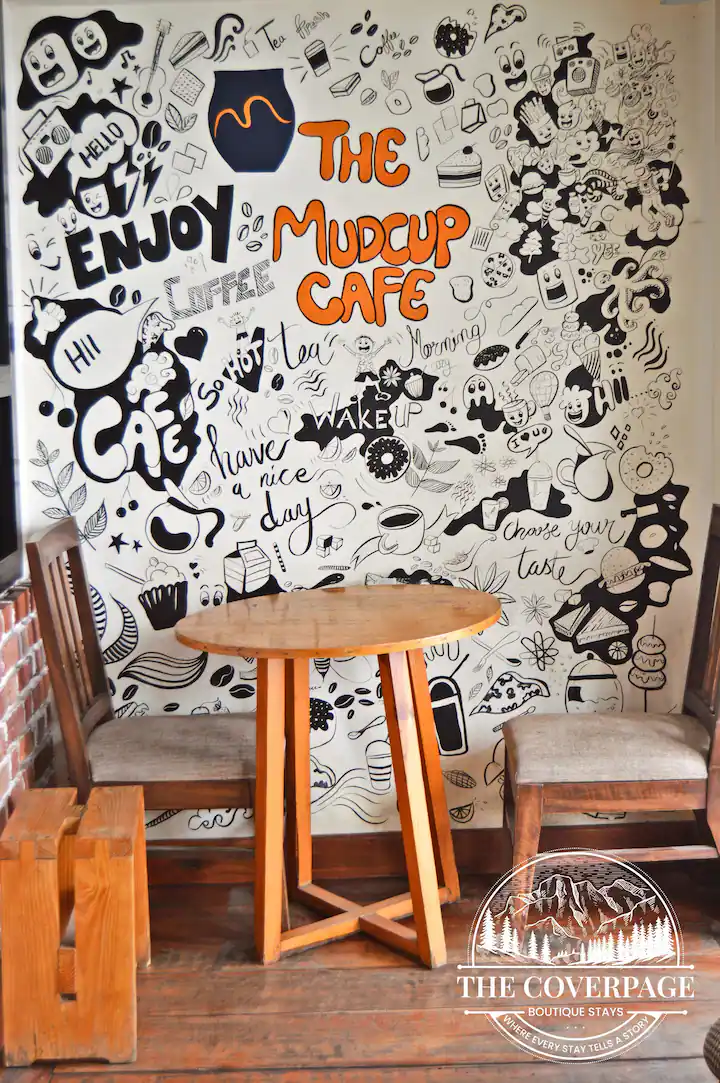 Tea
Coffee
HELLO
THE
MUDCUP
CAFE
ENJOY
COFFEE
HII
CAFE
SO HOT
tea
Morning
WAKE UP
HII
I ♥ U
have
a nice
day
choose your
taste
THE COVERPAGE
BOUTIQUE STAYS
WHERE EVERY STAY TELLS A STORY